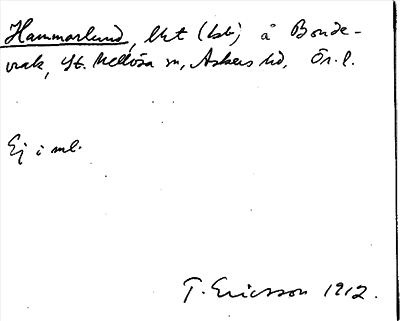 Hammarlund, lht (bst) å Bonde-
vrak, St. Mellösa sn, Askers hd, Ör. l.
Ej i ml.
T. Ericsson 1912.